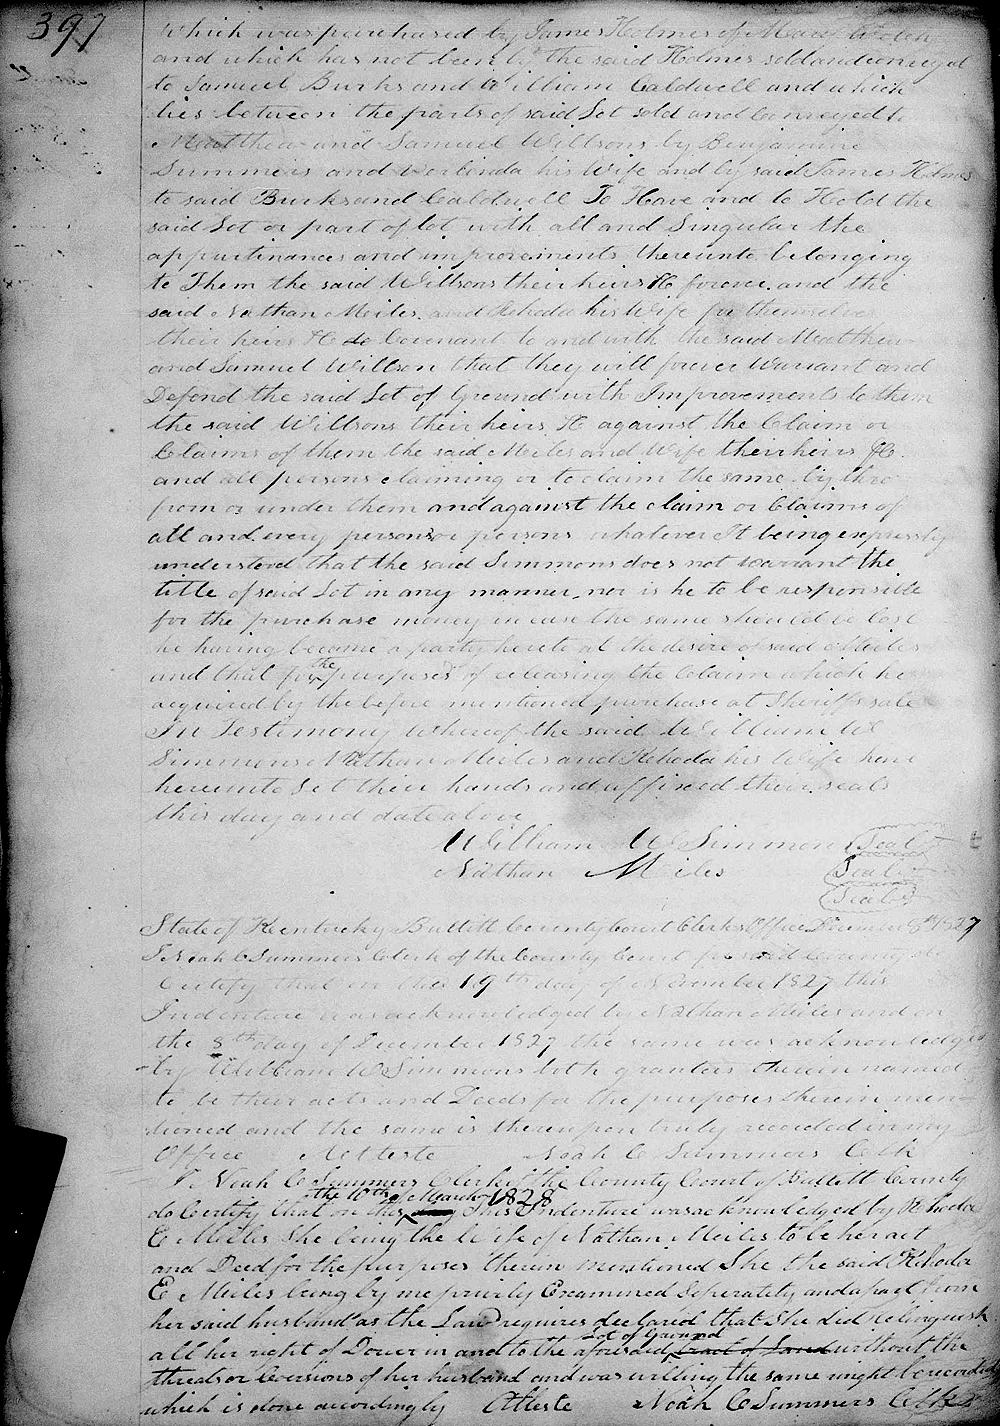 397
which was purchased by James Holmes of Mary
and which has not been by the said Holmes sold and conveyed
to Samuel Burks and William Caldwell and which
lies between the parts of said Lot sold and conveyed to
Matthew and Samuel Willsons by Benjamin
Summers and Verlinda his Wife and by said James Holmes
to said Burks and Caldwell To Have and to Hold the
said Lot or part of lot with all and Singular the
appurtinances and improvements thereunto belonging
to Them the said Willsons their heirs &c forever and the
said Nathan Miles and Rhoda his Wife for themselves
their heirs &c do Covenant to and with the said Matthew
and Samuel Willson that they will forever Warrant and
Defend the said Lot of Ground with Improvements to them
the said Willsons their heirs &c against the Claim or
Claims of them the said Miles and Wife their heirs &c.
and all persons claiming or to claim the same by thro
from or under them and against the claim or Claims of
all and every person or persons whatever It being expressly
understood that the said Simmons does not warrant the
title of said Lot in any manner, nor is he to be responsible
for the purchase money in case the same should be lost
he having become a party hereto at the desire of said Miles
and that for the purposes of releasing the Claim which he
acquired by the before mentioned purchase at Sheriffs sale
In Testimony whereof the said William W
Simmons Nathan Miles and Rhoda his Wife have
hereunto set their hands and affixed their seals
this day and date above
William W Simmon (Seal)
Nathan Miles (Seal)
(Seal)
State of Kentucky Bullitt County Court Clerks Office December 8th 1827
I Noah C Summers Clerk of the County Court for said County do
Certify that on the 19th day of November 1827 this
Indenture was acknowledged by Nathan Miles and on
the 8th day of December 1827 the same was acknowledged
by William W Simmons both grantors therein named
to be their acts and Deeds for the purposes therein men-
tioned and the same is thereupon truly recorded in my
Office Atteste Noah C Summers Clk
I. Noah C Summers Clerk of the County Court of Bullitt County
the 10th of March 1828
do Certify that on this This Indenture was acknowledged by Rhoda
E Miles She being the Wife of Nathan Miles to be her act
and Deed for the purposes therein mentioned She the said Rhoda
E Miles being by me privily Examined Seperately and apart from
her said husband as the Law requires declared that She did Relinquish
Lot of Ground
all her right of Dower in and to the aforesaid tract of Land without the
threats or Coersions of her husband and was willing the same might be recorded
which is done accordingly Atteste Noah C Summers Clk